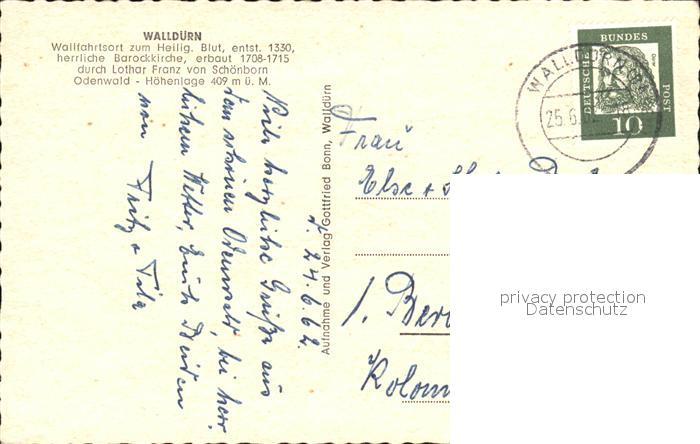 WALLDÜRN
Wallfahrtsort zum Heilig. Blut, entst. 1330,
herrliche Barockkirche, erbaut 1708-1715
durch Lothar Franz von Schönborn
Odenwald - Höhenlage 409 m ü. M.
d. 24.6.62.
Viele herzliche Grüße aus
dem schönen Odenwald, bei herr-
lichem Wetter, Euch Beiden
von Fritz + Tila
Aufnahme und Verlag Gottfried Bonn, Walldürn
Frau
Else +
1. Ber
Kolon
WALLDÜRN
25.6.
DEUTSCHE
BUNDES
POST
10
privacy protection
Datenschutz